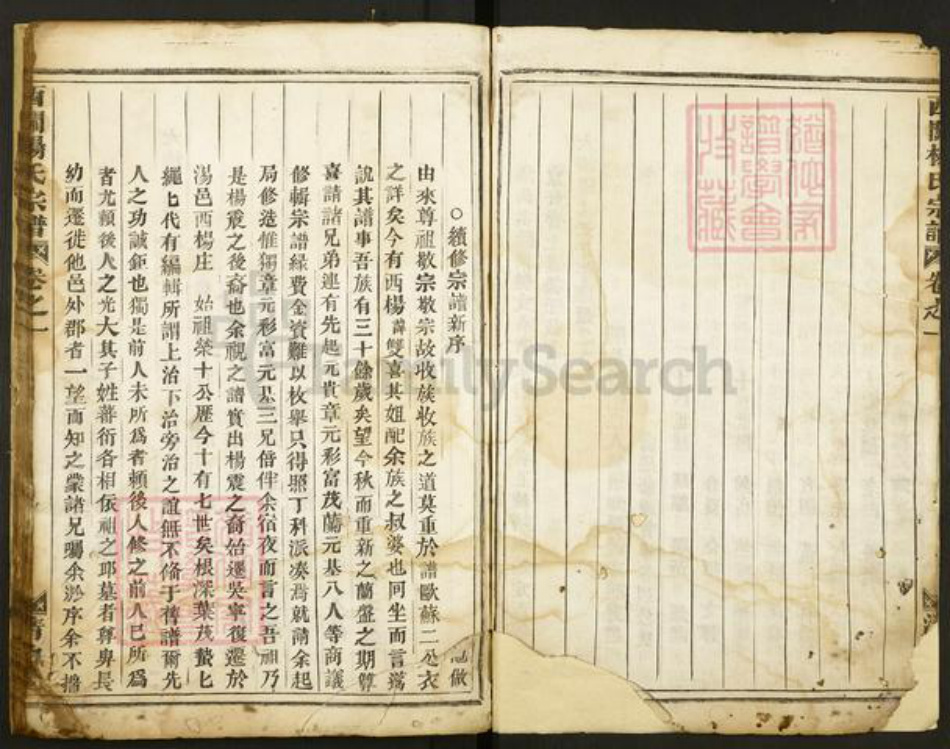 西關楊氏宗譜 卷之一
○續修宗譜新序
由來尊祖敬宗敬宗故收族收族之道莫重於譜歐蘇二公衣
之詳矣今有西楊 譜雙喜其姐配余族之叔婆也同坐而言蕩
說其譜事吾族有三十餘歲矣望今秋而重新之蘭盤之期尊
喜請諸兄弟連有先起元貴章元彩富茂蘭元基八人等商議
修輯宗譜緣費金資難以枚舉只得照丁科派湊焉就請余起
局修造惟獨章元彩富元基三兄倍伴余宿夜而言之吾祖乃
是楊震之後裔也余視之譜實出楊震之裔始遷吳寧復遷於
湯邑西楊庄 始祖榮十公歷今十有七世矣根深葉茂蟄匕
繩匕代有編輯所謂上治下治旁治之誼無不俻于舊譜爾先
人之功誠鉅也獨是前人未所為者賴後人修之前人已所為
者尤賴後人之光大其子姓蕃衍各相依祖之耶墓者尊卑長
幼而遷徙他邑外郡者一望而知之蒙諸兄囑余渺序余不揣
西關楊氏宗譜 卷之一
FamilySearch